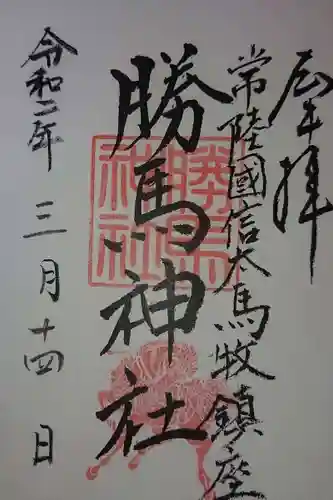 奉拝
常陸國信太馬牧鎮座
勝馬神社
勝馬
神社
令和二年三月十四日